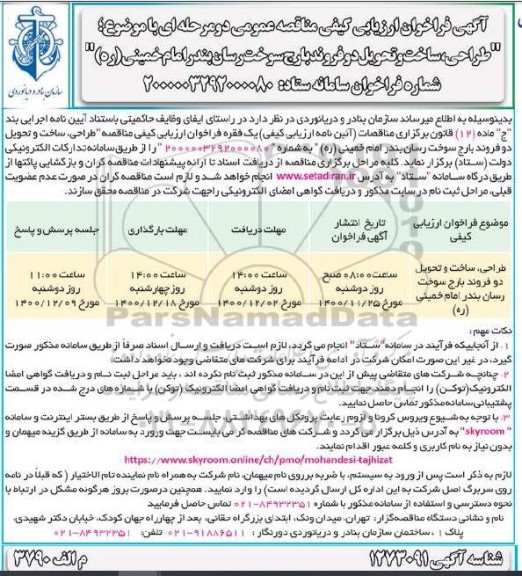 آگهی فراخوان ارزیابی کیفی مناقصه عمومی دو مرحله ای با موضوع؛
"طراحی، ساخت و تحویل دو فروند بارج سوخت رسان بندر امام خمینی (ره)"
شماره فراخوان سامانه ستاد: ۲۰۰۰۰۰۳۲۹۲۰۰۰۰۸۰
سازمان بنادر و دریانوردی
بدینوسیله به اطلاع میرساند سازمان بنادر و دریانوردی در نظر دارد در راستای ایفای وظایف حاکمیتی باستناد آیین نامه اجرایی بند
"ج" ماده (۱۲) قانون برگزاری مناقصات (آئین نامه ارزیابی کیفی) یک فقره فراخوان ارزیابی کیفی مناقصه "طراحی، ساخت و تحویل
دو فروند بارج سوخت رسان بندر امام خمینی (ره) " به شماره "۲۰۰۰۰۰۳۲۹۲۰۰۰۰۸۰" را از طریق سامانه تدارکات الکترونیکی
دولت (ستاد) برگزار نماید. کلیه مراحل برگزاری مناقصه از دریافت اسناد تا ارائه پیشنهادات مناقصه گران و بازگشایی پاکتها از
طریق درگاه سامانه "ستاد" به آدرس www.setadiran.ir انجام خواهد شد و لازم است مناقصه گران در صورت عدم عضویت
قبلی، مراحل ثبت نام در سایت مذکور و دریافت گواهی امضای الکترونیکی را جهت شرکت در مناقصه محقق سازند.
موضوع فراخوان ارزیابی کیفی
تاریخ انتشار آگهی فراخوان
مهلت دریافت
مهلت بارگذاری
جلسه پرسش و پاسخ
طراحی، ساخت و تحویل دو فروند بارج سوخت رسان بندر امام خمینی (ره)
ساعت ۰۸:۰۰ صبح روز دوشنبه مورخ ۱۴۰۰/۱۱/۲۵
ساعت ۱۴:۰۰ روز دوشنبه مورخ ۱۴۰۰/۱۲/۰۲
ساعت ۱۴:۰۰ روز چهارشنبه مورخ ۱۴۰۰/۱۲/۱۸
ساعت ۱۱:۰۰ روز دوشنبه مورخ ۱۴۰۰/۱۲/۰۹
ParsNamadData
نکات مهم :
۱. از آنجاییکه فرآیند در سامانه "ستاد" انجام می گردد، لازم است دریافت و ارسال اسناد صرفاً از طریق سامانه مذکور صورت
گیرد، در غیر این صورت امکان شرکت در ادامه فرآیند برای شرکت های متقاضی وجود نخواهد داشت.
۲. چنانچه شرکت های متقاضی پیش از این در سامانه مذکور ثبت نام نکرده اند ، باید مراحل ثبت نام و دریافت گواهی امضا
الکترونیک (توکن) را انجام دهند. جهت ثبت نام و دریافت گواهی امضا الکترونیک (توکن) با شماره های درج شده در قسمت
پشتیبانی سامانه مذکور تماس حاصل نمایید.
۳. با توجه به شیوع ویروس کرونا و لزوم رعایت پروتکل های بهداشتی، جلسه پرسش و پاسخ از طریق بستر اینترنت و سامانه
"skyroom" به آدرس ذیل برگزار می گردد و شرکت های مناقصه گر می بایست جهت ورود به سامانه از طریق گزینه میهمان و
بدون نیاز به نام کاربری و کلمه عبور اقدام نمایند.
https://www.skyroom.online/ch/pmo/mohandesi-tajhizat
لازم به ذکر است پس از ورود به سیستم، با ضربه بر روی نام میهمان، نام شرکت به همراه نام نماینده تام الاختیار ( که قبلاً در نامه
روی سربرگ اصل شرکت به این اداره کل ارسال گردیده است) را وارد نمایید. همچنین درصورت بروز هرگونه مشکل در ارتباط با
دسترسی و استفاده از سامانه مذکور با شماره ۸۴۹۳۲۳۵۱-۰۲۱ تماس حاصل فرمایید
نام و نشانی دستگاه مناقصه گزار: تهران، میدان ونک، ابتدای بزرگراه حقانی، بعد از چهارراه جهان کودک، خیابان دکتر شهیدی،
پلاک ۱ ، ساختمان سازمان بنادر و دریانوردی دورنگار : ۹۱۸۸۶۵۱۱-۰۲۱ تلفن: ۸۴۹۳۲۲۵۱-۰۲۱
شناسه آگهی ۱۲۷۳۰۹۱
م الف ۳۷۹۰